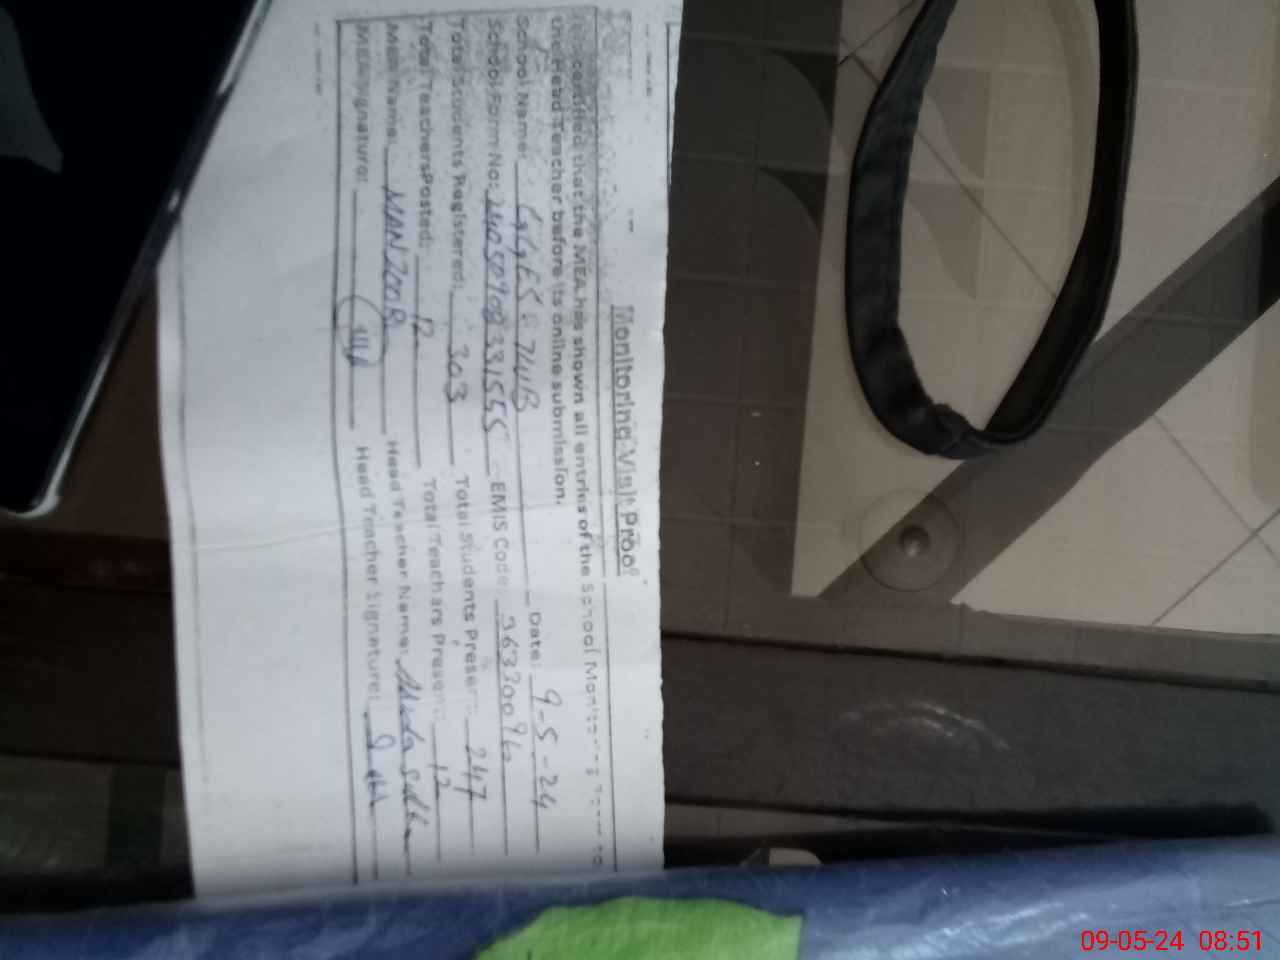 Monitoring Visit Proof
certified that the MEA has shown all entries of the School Monitoring Form to
the Head Teacher before its online submission.
School Name: Date: 9-5-24
School Form No: 24050908331555 EMIS Code: 36330096
Total Students Registered: 303 Total Students Present: 247
Total Teachers Posted: 12 Total Teachers Present: 12
MEA Name: MANZOOR Head Teacher Name:
MEA Signature: Head Teacher Signature:
09-05-24 08:51